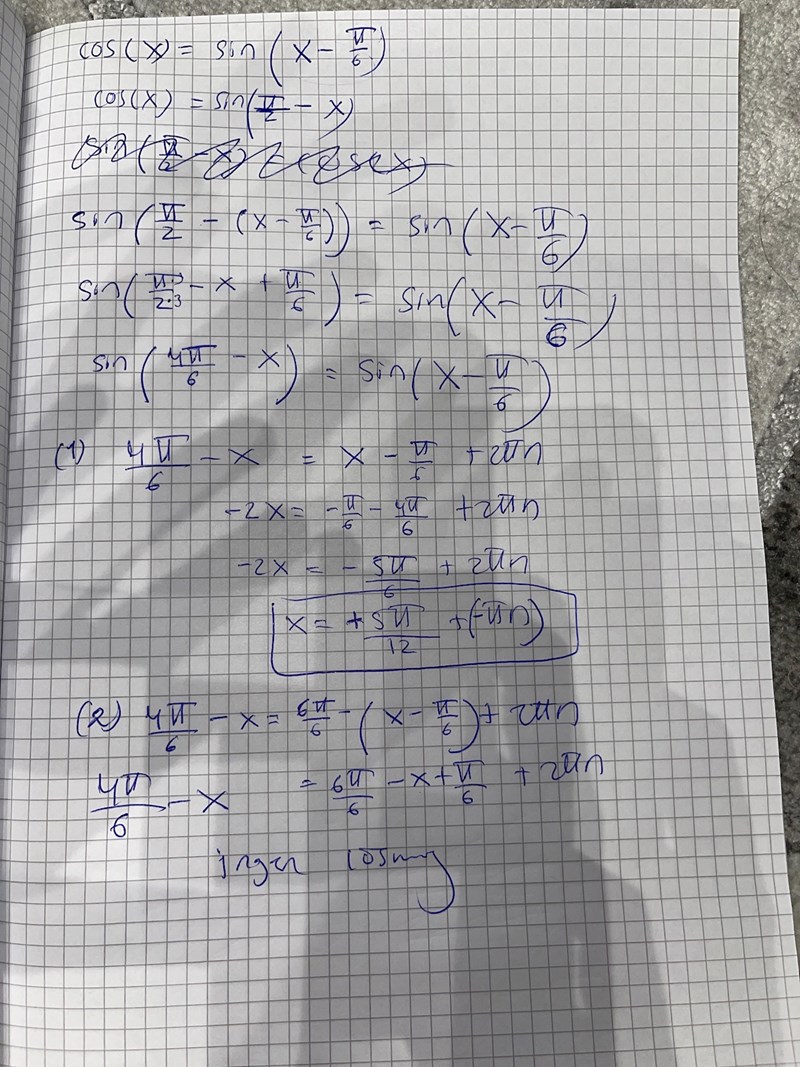 cos(x) = sin(x - π/6)
cos(x) = sin(π/2 - x)
sin(π/2 - (x - π/6)) = sin(x - π/6)
sin(π·3/2·3 - x + π/6) = sin(x - π/6)
sin(4π/6 - x) = sin(x - π/6)
(1) 4π/6 - x = x - π/6 + 2πn
-2x = -π/6 - 4π/6 + 2πn
-2x = -5π/6 + 2πn
x = +5π/12 + (-πn)
(2) 4π/6 - x = 6π/6 - (x - π/6) + 2πn
4π/6 - x = 6π/6 - x + π/6 + 2πn
ingen lösning